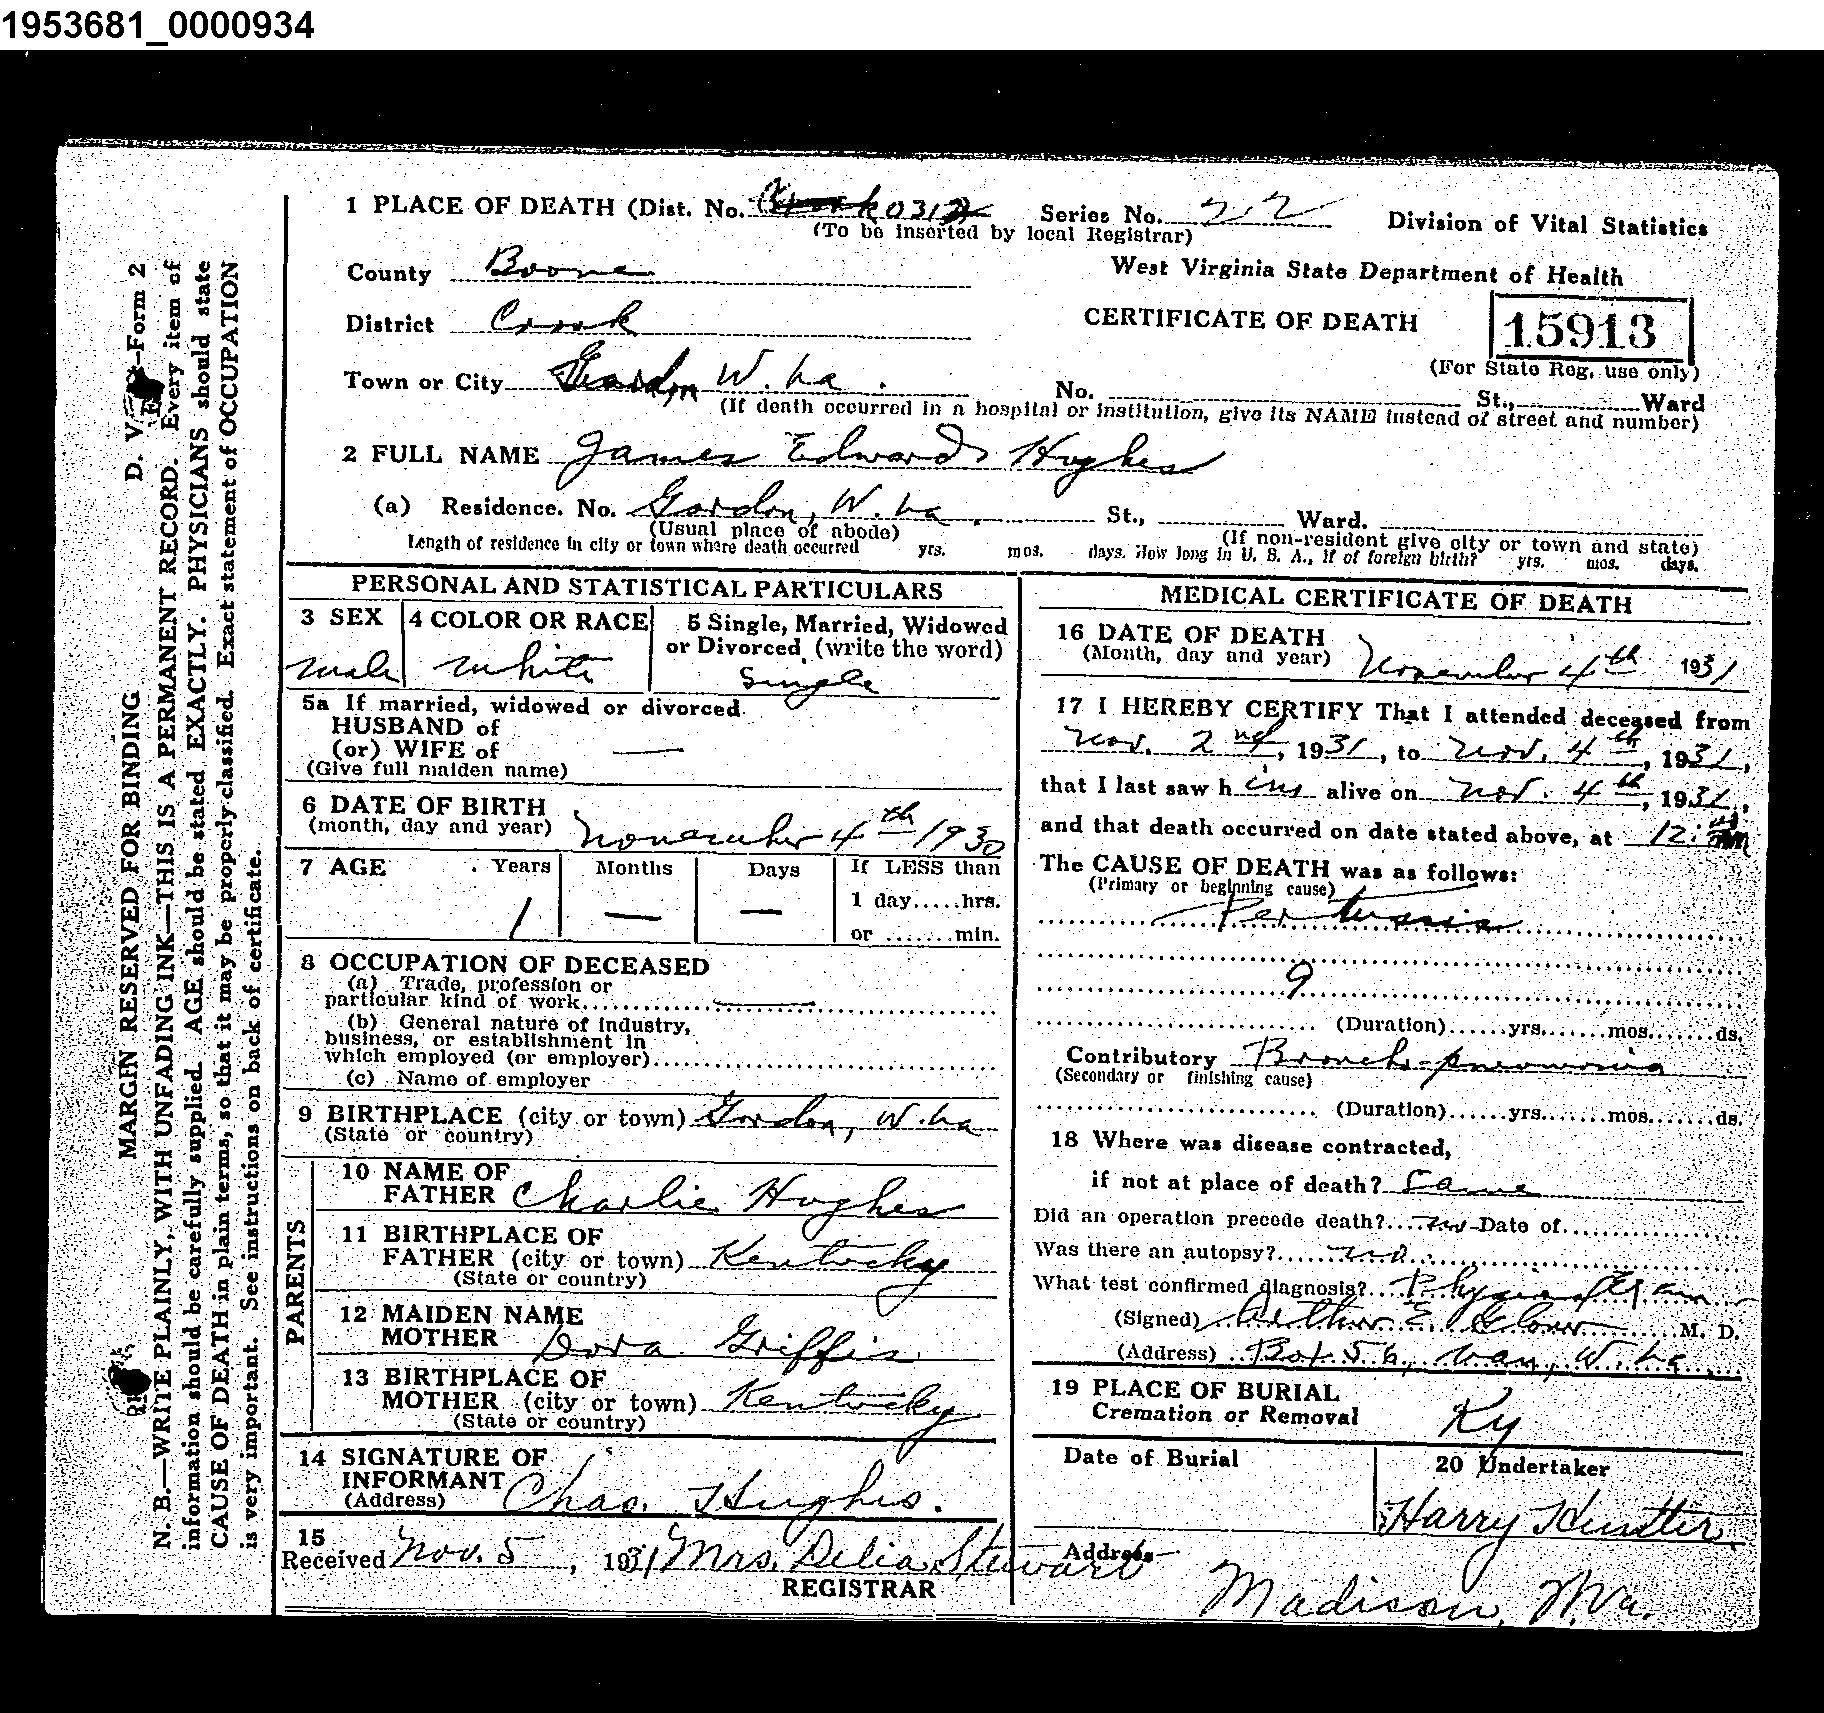 1953681_0000934
1 PLACE OF DEATH (Dist. No. 0312 Series No. 212 Division of Vital Statistics
(To be inserted by local Registrar)
County Boone West Virginia State Department of Health
District Crook CERTIFICATE OF DEATH 15913
(For State Reg. use only)
Town or City Gordon W. Va. No. St., Ward
(If death occurred in a hospital or institution, give its NAME instead of street and number)
2 FULL NAME James Edward Hughes
(a) Residence. No. Gordon, W. Va. St., Ward.
(Usual place of abode) (If non-resident give city or town and state)
Length of residence in city or town where death occurred yrs. mos. days. How long in U. S. A., if of foreign birth? yrs. mos. days.
PERSONAL AND STATISTICAL PARTICULARS
3 SEX 4 COLOR OR RACE 5 Single, Married, Widowed
or Divorced (write the word)
male white Single
5a If married, widowed or divorced
HUSBAND of
(or) WIFE of —
(Give full maiden name)
6 DATE OF BIRTH
(month, day and year) November 4th 1930
7 AGE Years Months Days If LESS than
1 day.....hrs.
1 — — or .......min.
8 OCCUPATION OF DECEASED
(a) Trade, profession or
particular kind of work
(b) General nature of industry,
business, or establishment in
which employed (or employer)
(c) Name of employer
9 BIRTHPLACE (city or town) Gordon, W. Va
(State or country)
PARENTS
10 NAME OF
FATHER Charlie Hughes
11 BIRTHPLACE OF
FATHER (city or town) Kentucky
(State or country)
12 MAIDEN NAME
MOTHER Dora Griffis
13 BIRTHPLACE OF
MOTHER (city or town) Kentucky
(State or country)
14 SIGNATURE OF
INFORMANT Chas. Hughes.
(Address)
15
Received Nov. 5, 1931 Mrs. Delia Stewart
REGISTRAR
MEDICAL CERTIFICATE OF DEATH
16 DATE OF DEATH
(Month, day and year) November 4th 1931
17 I HEREBY CERTIFY That I attended deceased from
Nov. 2nd, 1931, to Nov. 4th, 1931,
that I last saw him alive on Nov. 4th, 1931,
and that death occurred on date stated above, at 12:
The CAUSE OF DEATH was as follows:
(Primary or beginning cause)
Pertussis
9
(Duration)......yrs.......mos.......ds.
Contributory Broncho-pneumonia
(Secondary or finishing cause)
(Duration)......yrs.......mos.......ds.
18 Where was disease contracted,
if not at place of death? Same
Did an operation precede death? no Date of
Was there an autopsy? no.
What test confirmed diagnosis? Physical Exam
(Signed) Arthur E. Glover M. D.
(Address) Box 56, Van, W. Va
19 PLACE OF BURIAL
Cremation or Removal Ky
Date of Burial 20 Undertaker
Harry Hunter
Address
Madison, W. Va.
MARGIN RESERVED FOR BINDING D. V. -Form 2
N. B.—WRITE PLAINLY, WITH UNFADING INK—THIS IS A PERMANENT RECORD. Every item of
information should be carefully supplied. AGE should be stated EXACTLY. PHYSICIANS should state
CAUSE OF DEATH in plain terms, so that it may be properly classified. Exact statement of OCCUPATION
is very important. See instructions on back of certificate.